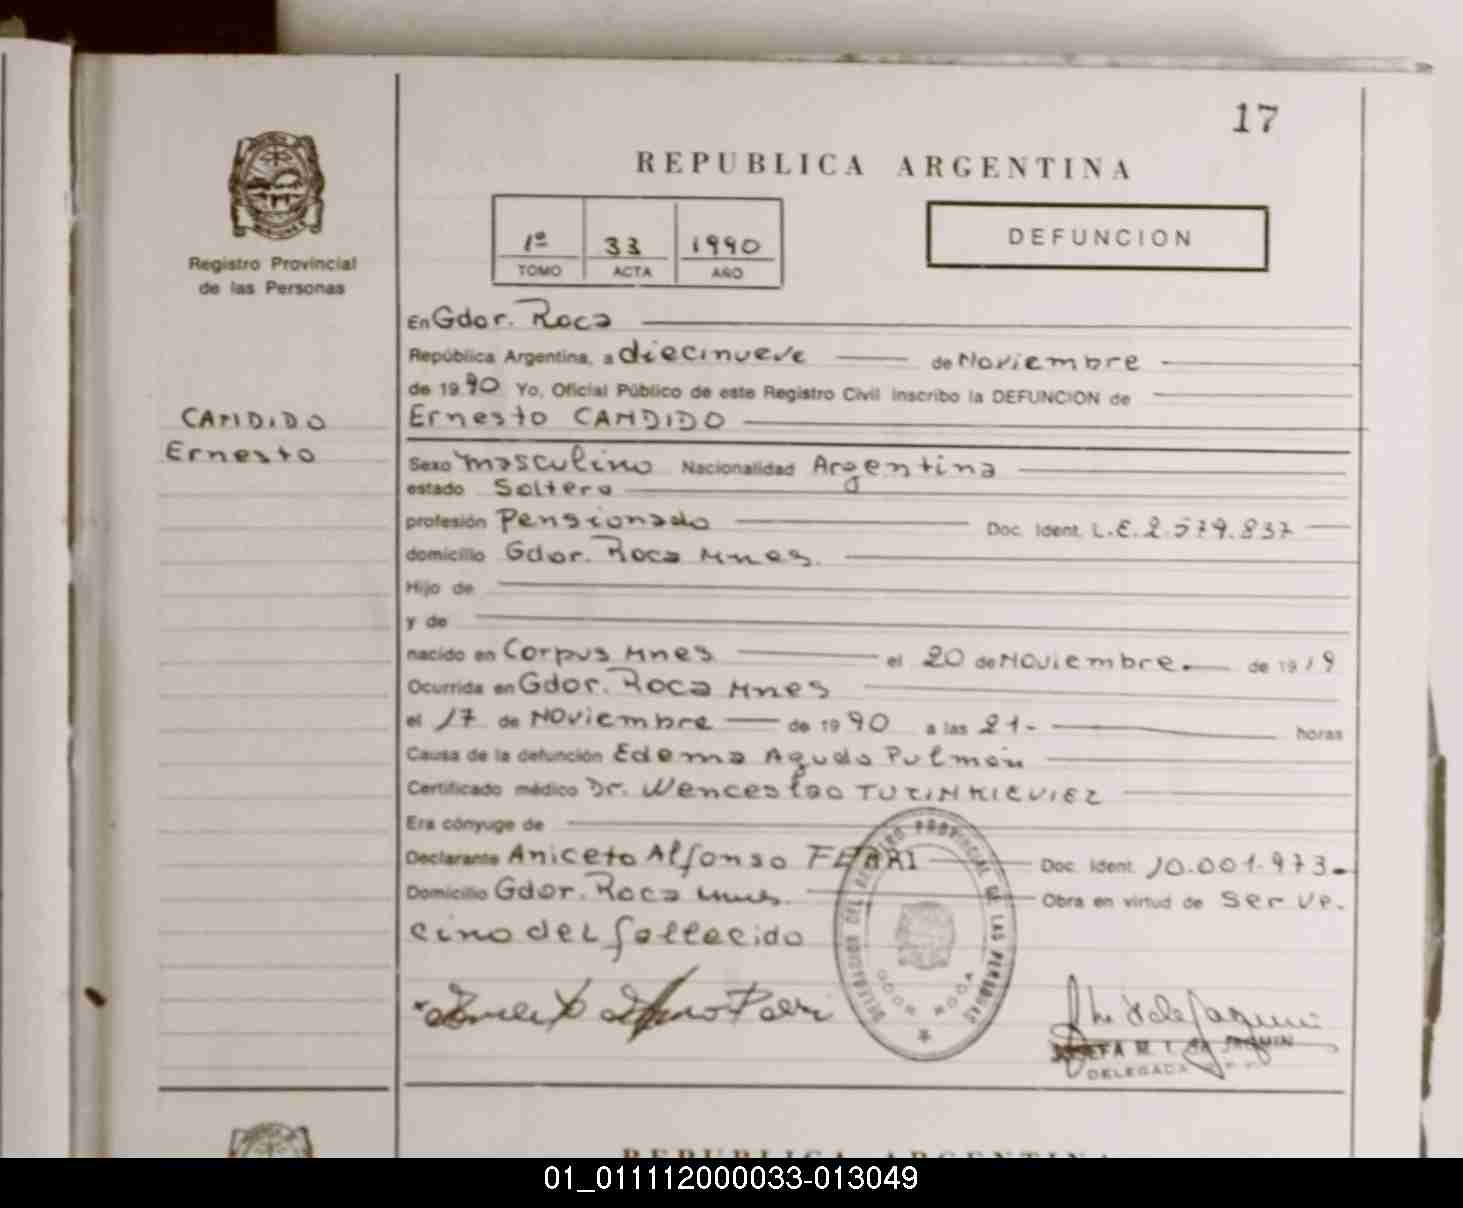 17
REPUBLICA ARGENTINA
1º 33 1990
TOMO ACTA AÑO
DEFUNCION
Registro Provincial
de las Personas
En Gdor. Roca
República Argentina, a diecinueve de Noviembre
de 1990 Yo, Oficial Público de este Registro Civil inscribo la DEFUNCION de
CANDIDO
Ernesto
Ernesto CANDIDO
Sexo masculino Nacionalidad Argentina
estado Soltero
profesión Pensionado Doc. Ident. L.E. 2.579.837
domicilio Gdor. Roca Mnes.
Hijo de
y de
nacido en Corpus Mnes el 20 de Noviembre. de 1919
Ocurrida en Gdor. Roca Mnes
el 17 de Noviembre de 1990 a las 21- horas
Causa de la defunción Edema Agudo Pulmón
Certificado médico Dr. Wenceslao
Era cónyuge de
Declarante Aniceto Alfonso Doc. Ident. 10.001.973-
Domicilio Gdor. Roca Mnes. Obra en virtud de Ser ve-
cino del fallecido
DELEGACION DEL REGISTRO PROVINCIAL DE LAS PERSONAS
GDOR ROCA
JOSEFA M. T. DE JAQUIN
DELEGADA
REPUBLICA ARGENTINA
01_011112000033-013049